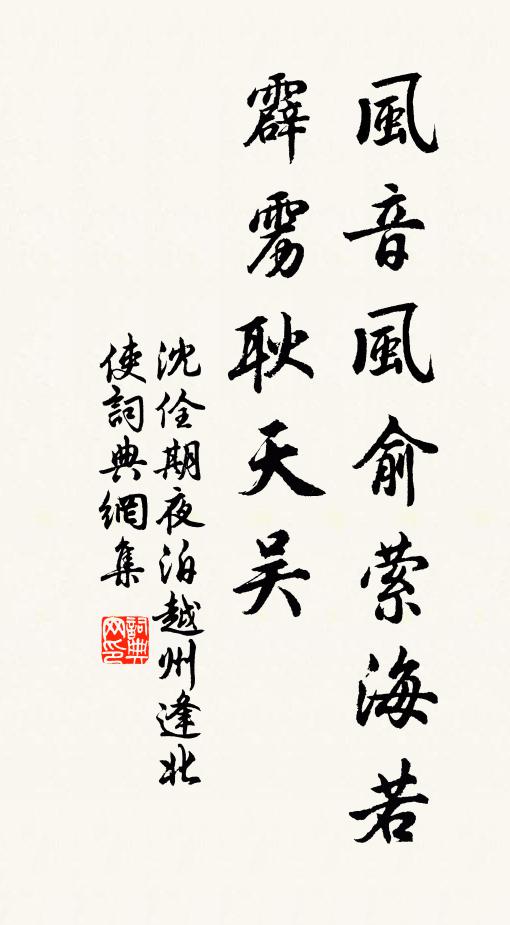 風音風俞萦海若
霹雳耿天吴
沈佺期夜泊越州逢北
使詞典網集
詞典网印